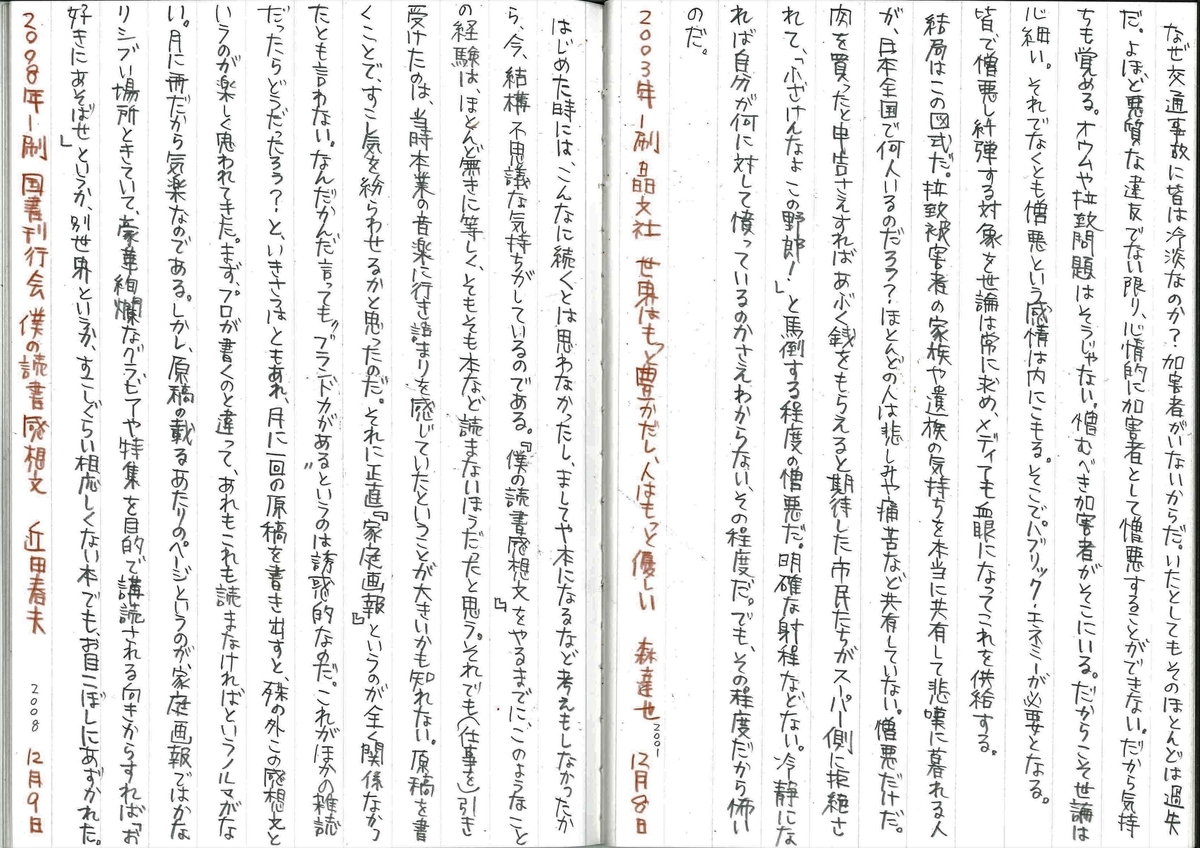 なぜ交通事故に皆は冷淡なのか?加害者がいないからだ。いたとしてもそのほとんどは過失
だ。よほど悪質な違反でない限り、心情的に加害者として憎悪することができない。だから気持
ちも覚める。オウムや拉致問題はそうじゃない。憎むべき加害者がそこにいる。だからこそ世論は
心細い。それでなくとも憎悪という感情は内にこもる。そこでパブリック・エネミーが必要となる。
皆で憎悪し糾弾する対象を世論は常に求め、メディアも血眼になってこれを供給する。
結局はこの図式だ。拉致被害者の家族や遺族の気持ちを本当に共有して悲嘆に暮れる人
が、日本全国で何人いるのだろう?ほとんどの人は悲しみや痛苦など共有していない。憎悪だけだ。
肉を買ったと申告さえすればあぶく銭をもらえると期待した市民たちがスーパー側に拒絶さ
れて、「ふざけんなよこの野郎!」と罵倒する程度の憎悪だ。明確な射程などない。冷静にな
れば自分が何に対して憤っているのかさえわからない、その程度だ。でも、その程度だから怖い
のだ。
2003年一刷 晶文社 世界はもっと豊かだし、人はもっと優しい 森達也 2001 12月8日
はじめた時には、こんなに続くとは思わなかったし、ましてや本になるなど考えもしなかったか
ら、今、結構不思議な気持ちがしているのである。『僕の読書感想文』をやるまでに、このようなこと
の経験は、ほとんど無きに等しく、そもそも本など読まないほうだったと思う。それでも(仕事を)引き
受けたのは、当時本業の音楽に行き詰まりを感じていたということが大きいかも知れない。原稿を書
くことで、すこし気を紛らわせるかと思ったのだ。それに正直『家庭画報』というのが全く関係なかっ
たとも言わない。なんだかんだ言っても〝ブランド力がある〟というのは誘惑的なのだ。これがほかの雑誌
だったらどうだったろう?と、いきさつはともあれ、月に一回の原稿を書き出すと、殊の外この感想文と
いうのが楽しく思われてきた。まず、プロが書くのと違って、あれもこれも読まなければというノルマがな
い。月に一冊だから気楽なのである。しかし、原稿の載るあたりのページというのが、家庭画報ではかな
りシブい場所ときていて、豪華絢爛なグラビアや特集を目的で講読される向きからすれば「お
好きにあそばせ」というか、別世界というか、すこしぐらい相応しくない本でも、お目こぼしにあずかれた。
2008年一刷 国書刊行会 僕の読書感想文 近田春夫 2008 12月9日